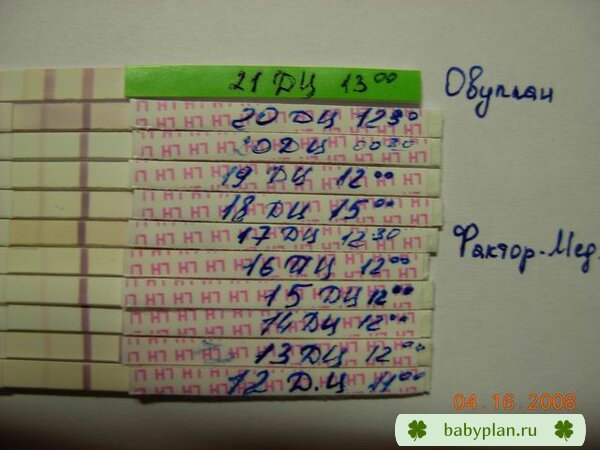 21 ДЦ 13 00
Овуплан
20 ДЦ 12 30
20 ДЦ 00 20
19 ДЦ 12 00
18 ДЦ 15 00
17 ДЦ 12 30
Фактор-Мед.
16 ДЦ 12 00
15 ДЦ 12 00
14 ДЦ 12 00
13 ДЦ 12 00
12 Д.Ц 11 00
04.16.2008
babyplan.ru